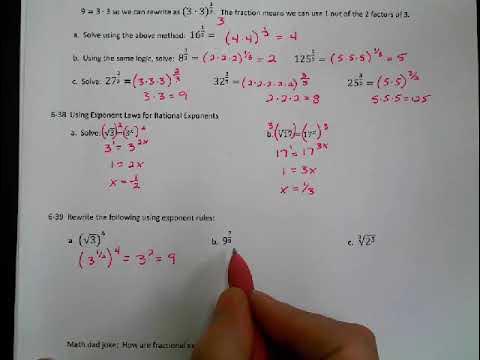 9 = 3 · 3 so we can rewrite as (3 · 3)^½. The fraction means we can use 1 out of the 2 factors of 3.
3
a. Solve using the above method: 16^½ = (4·4)^½ = 4
b. Using the same logic, solve: 8^⅓ = (2·2·2)^⅓ = 2 125^⅓ = (5·5·5)^⅓ = 5
c. Solve: 27^⅔ = (3·3·3)^⅔ 32^⅗ = (2·2·2·2·2)^⅗ 25^(3/2) = (5·5)^(3/2)
3·3 = 9 2·2·2 = 8 5·5·5 = 125
6-38 Using Exponent Laws for Rational Exponents
a. Solve: (√3)² = (3^x)² b. ³(∛17) = (17^x)³
3¹ = 3^2x 17¹ = 17^3x
1 = 2x 1 = 3x
x = ½ x = ⅓
6-39 Rewrite the following using exponent rules:
a. (√3)⁴ b. 9 c.
(3^½)⁴ = 3² = 9
Math dad joke: How are fractional